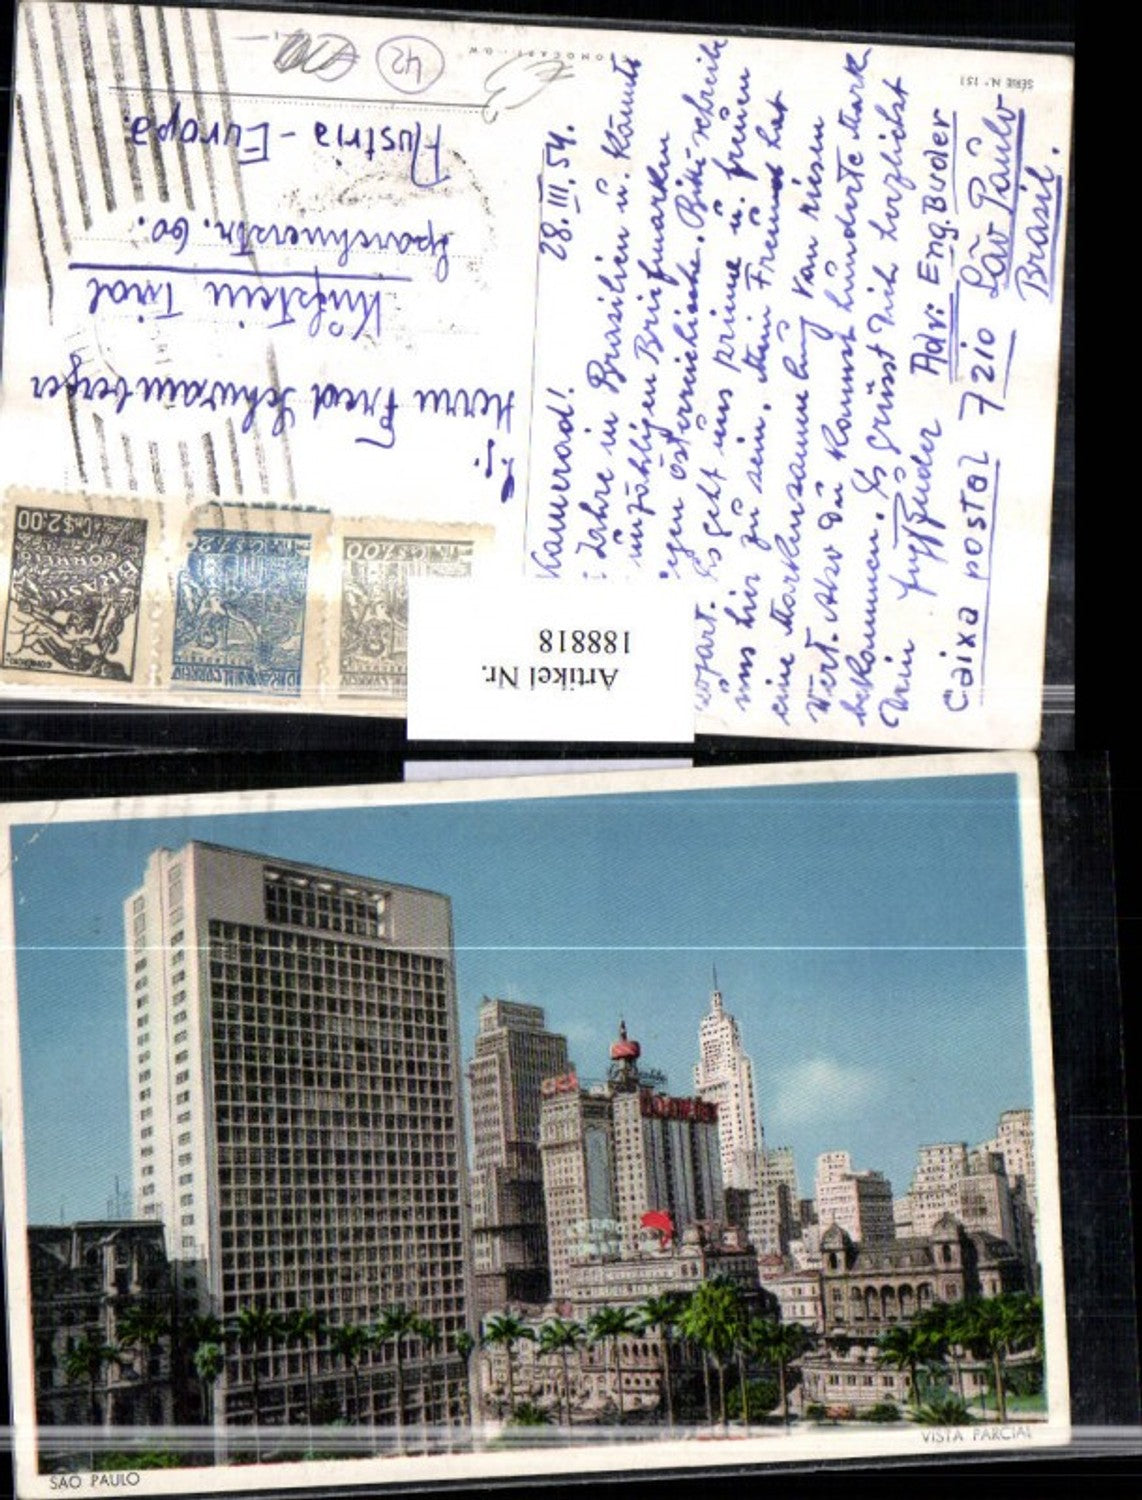 SÉRIE N.° 151
42
28. III. 54.
Kamerad!
Jahre in Brasilien u. könnte
unzähligen Briefmarken
österreichische. Bitte schreibe
sofort. Es geht uns prima u. freuen
uns hier zu sein. Mein Freund hat
eine Markensammlung von riesen
Wert. Also Du kannst hunderte Mark
bekommen. Es grüsst Dich herzlichst
Dein
Adr: Eng. Buder
Caixa postal 7210 São Paulo
Brasil.
Herrn Fred Schwainberger
Kufstein Tirol
Sparchnerstr. 60.
Austria - Europa
Cr$2.00
BRASIL
CORREIO
Artikel Nr.
188818
SÃO PAULO
VISTA PARCIAL